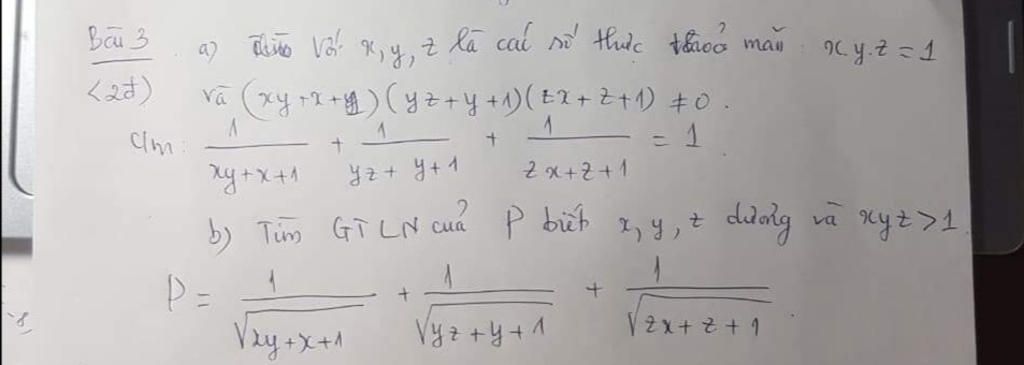 Bài 3 a) Với x, y, z là các số thực thoả mãn: x.y.z = 1
(2đ) và (xy+x+1)(yz+y+1)(zx+z+1) ≠ 0.
C/m: 1/(xy+x+1) + 1/(yz+y+1) + 1/(zx+z+1) = 1
b) Tìm GTLN của P biết x, y, z dương và xyz > 1.
P = 1/√(xy+x+1) + 1/√(yz+y+1) + 1/√(zx+z+1).